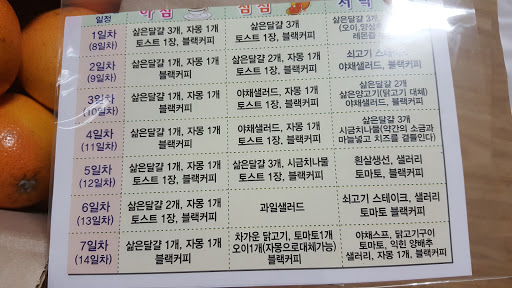 일정 아침 점심 저녁
1일차
(8일차)
삶은달걀 3개, 자몽 1개
토스트 1장, 블랙커피
삶은달걀 3개
토스트 1장, 블랙커피
삶은달걀 3개,
(오이,양상추
레몬즙
2일차
(9일차)
삶은달걀 1개, 자몽 1개
블랙커피
삶은달걀 2개, 자몽 1개
토스트 1장, 블랙커피
쇠고기 스테이크,
야채샐러드, 블랙커피
3일차
(10일차)
삶은달걀 1개, 자몽 1개
블랙커피
야채샐러드, 자몽 1개
토스트 1장, 블랙커피
삶은달걀 2개
삶은양고기(닭고기 대체)
야채샐러드, 블랙커피
4일차
(11일차)
삶은달걀 1개, 자몽 1개
토스트 1장, 블랙커피
야채샐러드, 자몽 1개
토스트 1장, 블랙커피
삶은달걀 3개
시금치나물(약간의 소금과
마늘넣고 치즈를 곁들인다)
5일차
(12일차)
삶은달걀 1개, 자몽 1개
토스트 1장, 블랙커피
삶은달걀 3개, 시금치나물
토스트 1장, 블랙커피
흰살생선, 샐러리
토마토, 블랙커피
6일차
(13일차)
삶은달걀 2개, 자몽 1개
토스트 1장, 블랙커피
과일샐러드
쇠고기 스테이크, 샐러리
토마토 블랙커피
7일차
(14일차)
삶은달걀 2개, 자몽 1개
블랙커피
차가운 닭고기, 토마토1개
오이1개(자몽으로대체가능)
블랙커피
야채스프, 닭고기구이
토마토, 익힌 양배추
샐러리, 자몽 1개, 블랙커피